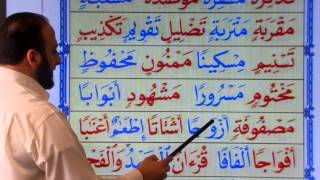 مَقْرَبَةٍ مَتْرَبَةٍ تَضْلِيلٍ تَقْوِيمٍ تَكْذِيبٍ
تَسْنِيمٍ مِسْكِينًا مَمْنُونٍ مَحْفُوظٍ
مَخْتُومٍ مَسْرُورًا مَشْهُودٍ أَبْوَابًا
مَصْفُوفَةٌ أَزْوَاجًا أَشْتَاتًا إِطْعَمٌ أَعْنَبًا
أَفْوَاجًا أَلْفَافًا قُرْءَانٌ